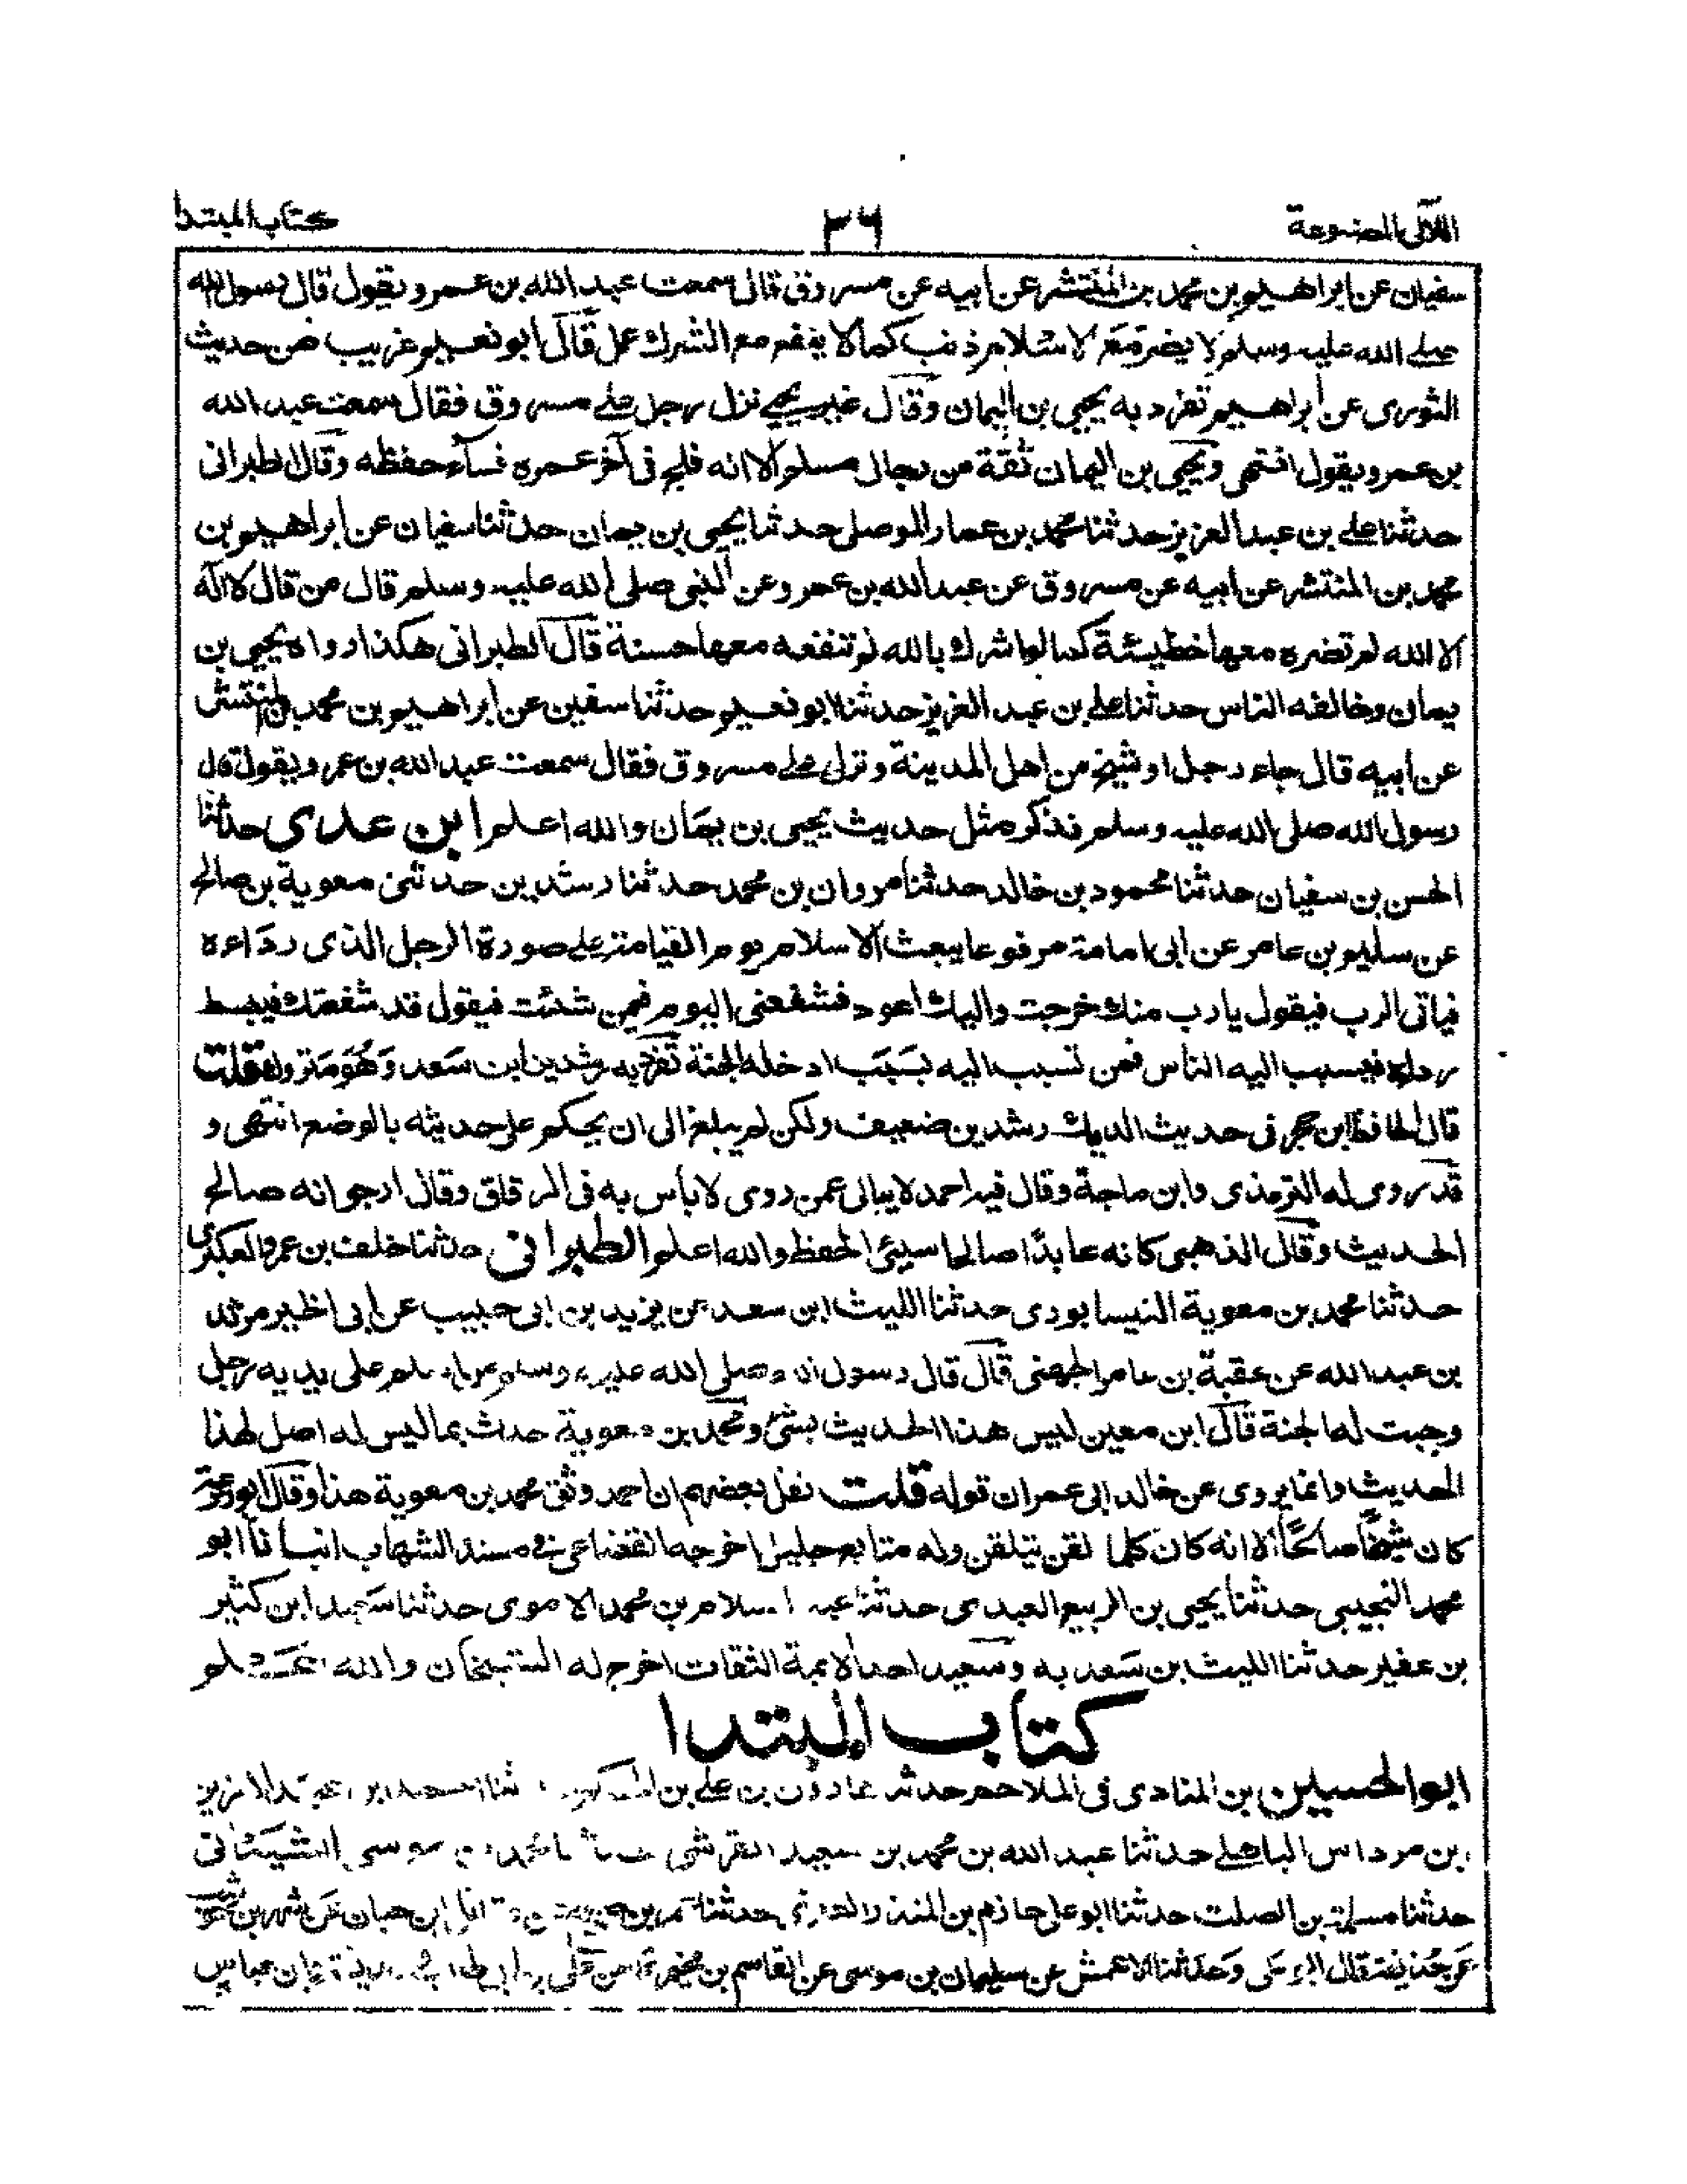 اللآلى المصنوعة
٢٦
كتاب المبتدا
سفيان عن ابراهيم بن محمد بن المنتشر عن ابيه عن مسروق قال سمعت عبد الله بن عمرو يقول قال رسول الله
صلى الله عليه وسلم لا يضر مع الاسلام ذنب كما لا ينفع مع الشرك عمل قال ابو نعيم غريب من حديث
الثورى عن ابراهيم تفرد به يحيى بن اليمان وقال غير يحيى نزل رجل على مسروق فقال سمعت عبد الله
بن عمرو يقول انتهى ويحيى بن اليمان ثقة من رجال مسلم الا انه فلج فى آخر عمره فسآء حفظه وقال الطبرانى
حدثنا على بن عبد العزيز حدثنا محمد بن عمار الموصلى حدثنا يحيى بن يمان حدثنا سفيان عن ابراهيم بن
محمد بن المنتشر عن ابيه عن مسروق عن عبد الله بن عمرو عن النبى صلى الله عليه وسلم قال من قال لا اله
الا الله لم تضره معها خطيئة كما لو اشرك بالله لم تنفعه معها حسنة قال الطبرانى هكذا رواه يحيى بن
يمان وخالفه الناس حدثنا على بن عبد العزيز حدثنا ابو نعيم حدثنا سفين عن ابراهيم بن محمد بن المنتشر
عن ابيه قال جاء رجل او شيخ من اهل المدينة ونزل على مسروق فقال سمعت عبد الله بن عمرو يقول قال
رسول الله صلى الله عليه وسلم فذكره مثل حديث يحيى بن يمان والله اعلم ابن عدى حدثنا
الحسن بن سفيان حدثنا محمود بن خالد حدثنا مروان بن محمد حدثنا رشدين حدثنى معوية بن صالح
عن سليم بن عامر عن ابى امامة مرفوعا يبعث الاسلام يوم القيامة على صورة الرجل الذى رداءه
فياتى الرب فيقول يا رب منك خرجت واليك اعود فشفعنى اليوم فيمن شئت فيقول قد شفعتك فيبسط
رداءه فيسبب اليه الناس فمن تسبب اليه بسبب ادخله الجنة تفرد به رشدين ابن سعد وهو متروك قلت
قال الحافظ ابن حجر فى حديث الديك رشدين ضعيف ولكن لم يبلغ الى ان يحكم على حديثه بالوضع انتهى و
قد روى له الترمذى وابن ماجة وقال فيه احمد لا يبالى عمن روى لا باس به فى الرقاق وقال ارجو انه صالح
الحديث وقال الذهبى كانه عابدا صالحا سيئ الحفظ والله اعلم الطبرانى حدثنا خلف بن عمرو العكبرى
حدثنا محمد بن معوية النيسابورى حدثنا الليث ابن سعد عن يزيد بن ابى حبيب عن ابى الخير مرثد
بن عبد الله عن عقبة بن عامر الجهنى قال قال رسول الله صلى الله عليه وسلم من اسلم على يديه رجل
وجبت له الجنة قال ابن معين ليس هذا الحديث بشئ ومحمد بن معوية حدث بما ليس له اصل لهذا
الحديث وانما يروى عن خالد ابى عمران قوله قلت نقل بعضهم ان احمد وثق محمد بن معوية هذا وقال ابو زرعة
كان شيخا صالحا الا انه كان كلما لقن يتلقن وله متابع جليل اخرجه القضاعى فى مسند الشهاب انبانا ابو
محمد التجيبى حدثنا يحيى بن الربيع العبدى حدثنا عبد السلام بن محمد الاموى حدثنا سعيد ابن كثير
بن عفير حدثنا الليث بن سعد به وسعيد احد الايمة الثقات اخرج له الشيخان والله
كتاب المبتدا
ابو الحسين بن المنادى فى الملاحم حدثنا هارون بن على بن
بن مرداس الباهلى حدثنا عبد الله بن محمد بن سعيد القرشى محمد بن موسى الشيبانى
حدثنا مسلمة بن الصلت حدثنا ابو على حازم بن المنذر حدثنا عمر بن ابن حبان عن شهر بن حوشب
عن حذيفة قال وحدثنا الاعمش عن سليمان بن موسى عن القاسم بن مخيمرة عن على بن ابى طالب ابن عباس